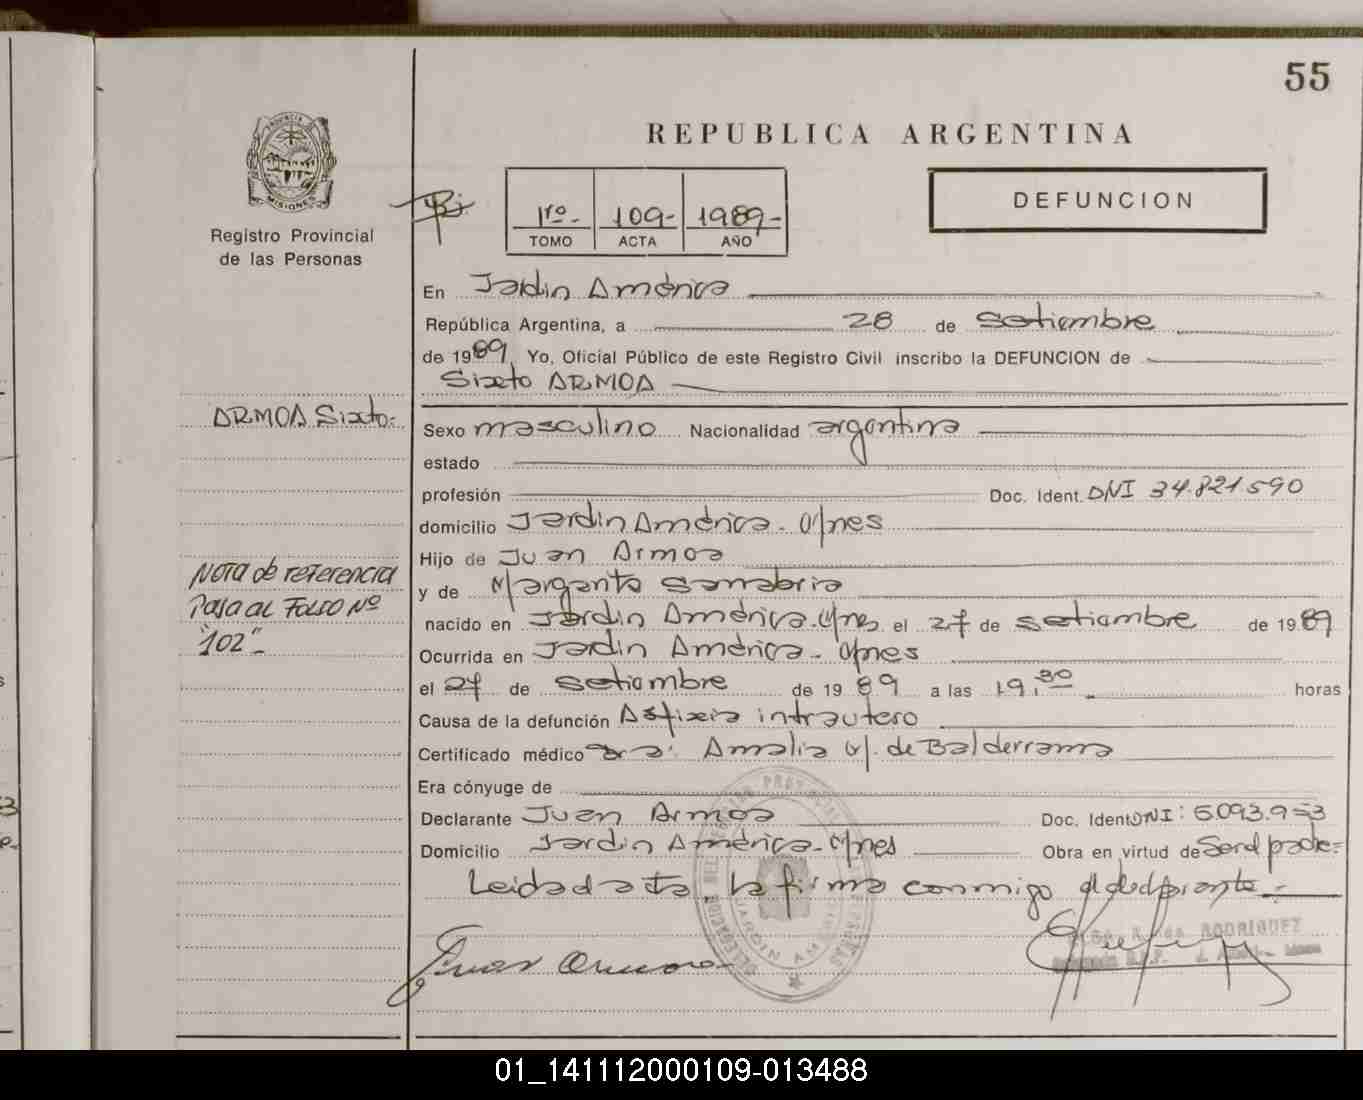 55
PROVINCIA DE
MISIONES
Registro Provincial
de las Personas
REPUBLICA ARGENTINA
1ro.- 109- 1989-
TOMO ACTA AÑO
DEFUNCION
En Jardin América
República Argentina, a 28 de setiembre
de 1989, Yo, Oficial Público de este Registro Civil inscribo la DEFUNCION de
Sixto ARMOA
ARMOA Sixto.-
Sexo masculino Nacionalidad argentina
estado
profesión Doc. Ident. DNI 34.821.590
domicilio Jardin América - Mnes
Hijo de Juan Armoa
Nota de referencia
Pasa al Folio Nº
"102"-
y de Margarita Sanabria
nacido en Jardin América - Mnes el 27 de setiembre de 1989
Ocurrida en Jardin América - Mnes
el 27 de setiembre de 1989 a las 19,30 horas
Causa de la defunción Asfixia intrautero
Certificado médico Dra. Amalia V. de Balderrama
Era cónyuge de
Declarante Juan Armoa Doc. Ident DNI: 5.093.953
Domicilio Jardin América - Mnes Obra en virtud de Ser el padre=
Leida el acta la firma conmigo el declarante.-
Juan Armoa
RODRIGUEZ
JARDIN AMERICA
01_141112000109-013488